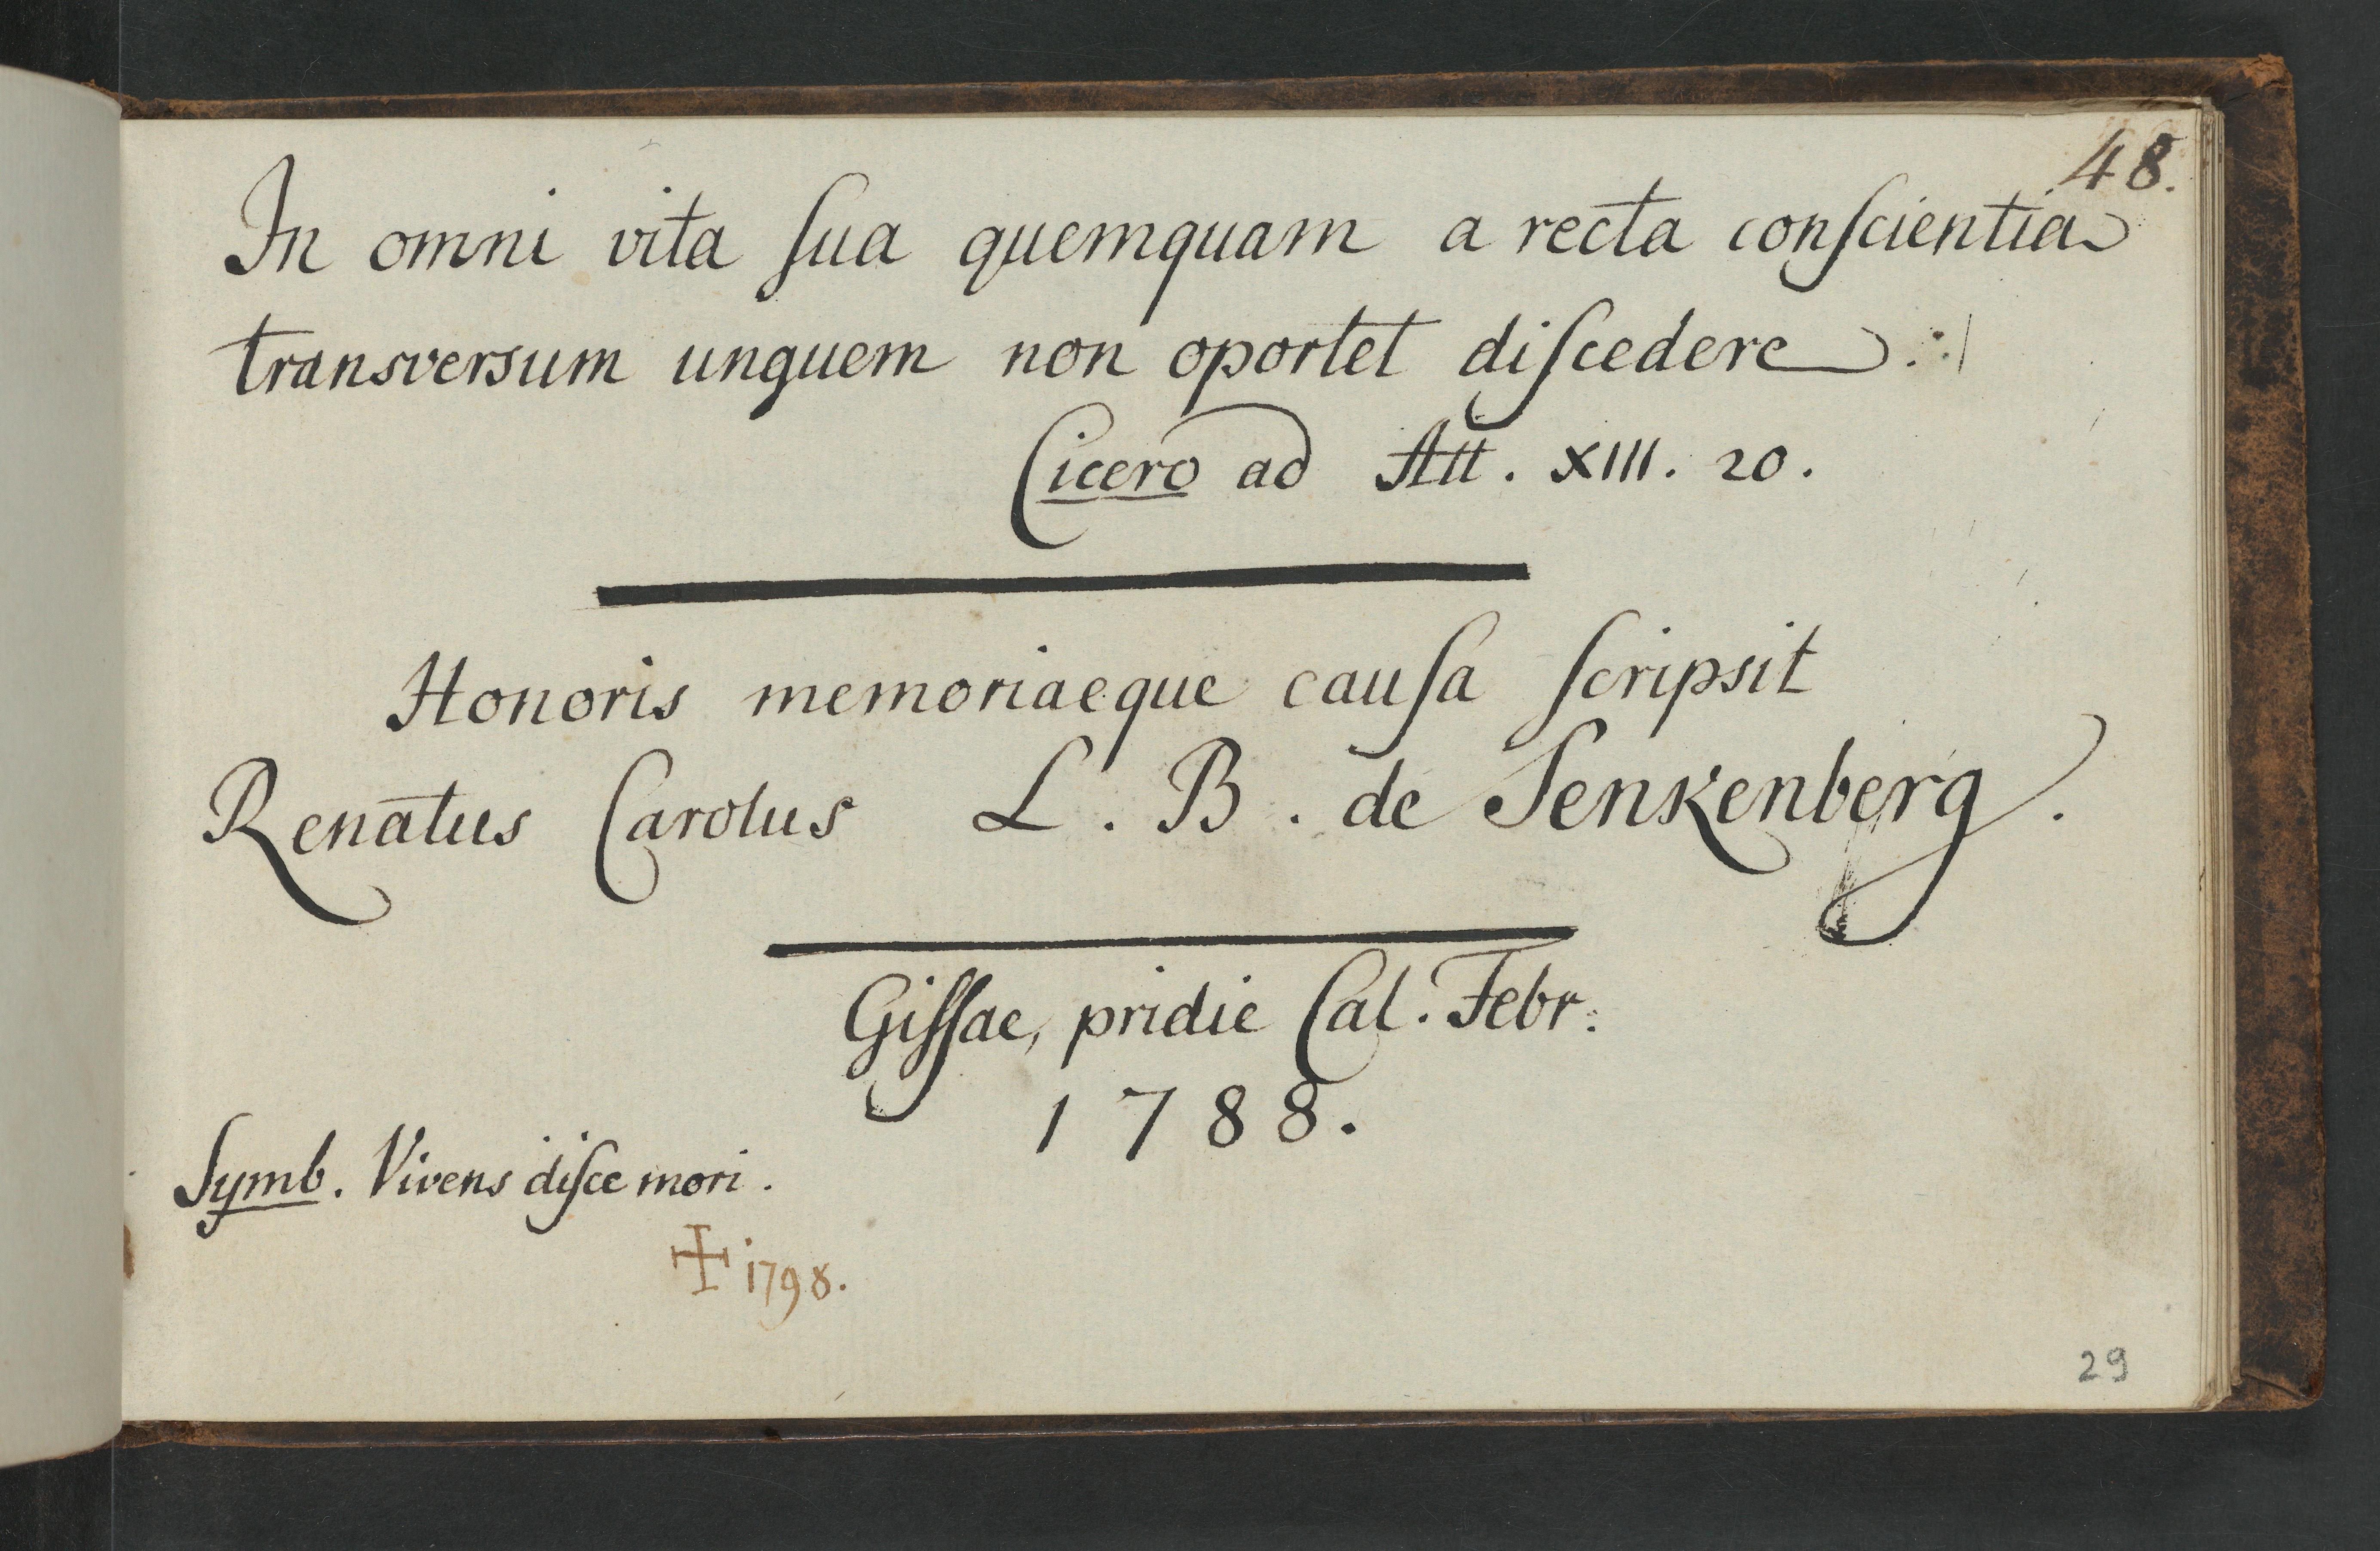 48.
In omni vita ſua quemquam a recta conſcientia
transversum unguem non oportet diſcedere .:|
Cicero ad Att. XIII. 20.
Honoris memoriaeque cauſa ſcripsit
Renatus Carolus L. B. de Senkenberg.
Giſſae, pridie Cal. Febr:
1788.
Symb. Vivens diſce mori.
☩ 1798.
29